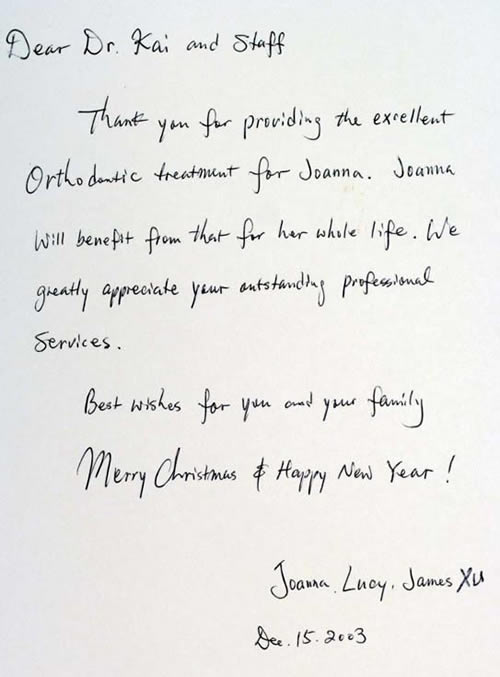 Dear Dr. Kai and Staff
Thank you for providing the excellent
Orthodontic treatment for Joanna. Joanna
Will benefit from that for her whole life. We
greatly appreciate your outstanding professional
Services.
Best wishes for you and your family
Merry Christmas & Happy New Year !
Joanna, Lucy, James Xu
Dec. 15. 2003